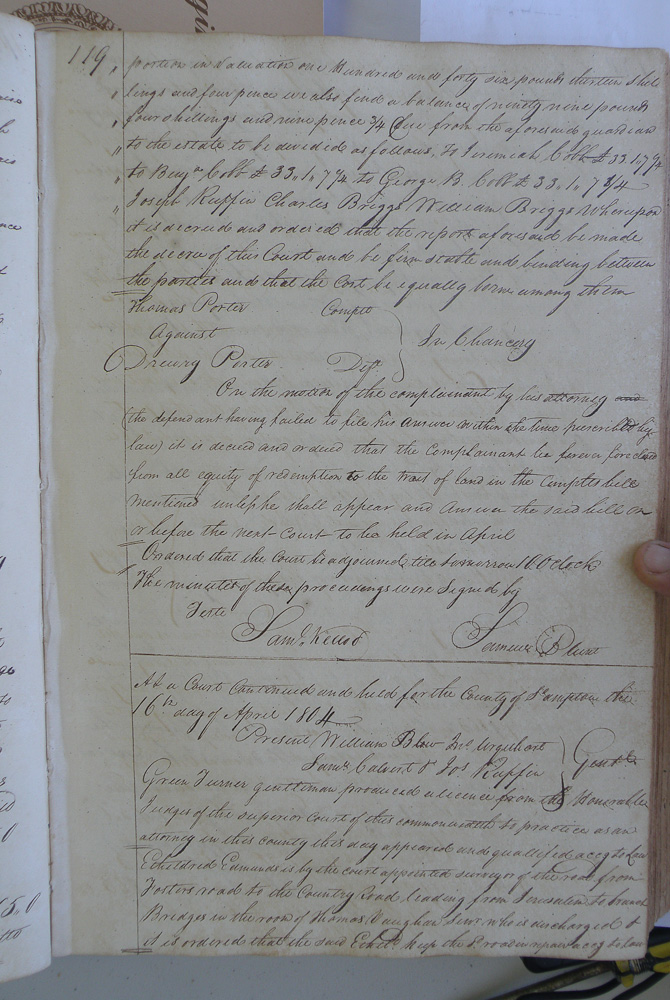 119
portion in Valuation one Hundred and forty six pounds thirteen shil
lings and four pence we also find a balance of ninety nine pounds
four shillings and nine pence 3/4 due from the aforesaid guardian
to the estate to be devided as follows, To Jeremiah Cobb £ 33.1.7 3/4
to Benjn Cobb £ 33,,1,,7 3/4 to George B. Cobb £ 33,,1,,7 3/4
Joseph Ruffin Charles Briggs William Briggs Whereupon
it is decreed and ordered that the report aforesaid be made
the decree of this Court and be firm stable and binding between
the parties and that the Cost be equally born among them
Thomas Porter Complt
Against
In Chancery
Drewry Porter Deft.
On the motion of the complainant by his attorney and
(the defendant having failed to file his answer within the time prescribed by
law) it is decreed and ordered that the Complainant be forever foreclosed
from all equity of redemption to the tract of land in the Complts bill
mentioned unless he shall appear and answer the said bill on
or before the next Court to be held in April
Ordered that the Court be adjourned till tomorrow 10 Oclock
The minutes of these proceedings were signed by
Teste
Saml. Kello Samuel Blunt
At a Court Continued and held for the County of S'ampton the
16th day of April 1804
Present William Blow Jno. Urquhart
Gentle
Saml. Calvert & Jos Ruffin
Green Turner gentleman produced a licence from the Honorable
Judges of the superior Court of this commonwealth to practice as an
attorney in this county this day appeared and qualified accg to Law
Etheldred Edmunds is by the court appointed surveyor of the road from
Fosters road to the Country Road leading from Jerusalem to branch
Bridges in the room of Thomas Vaughan Senr. who is discharged &
it is ordered that the said Etheld. keep the Road in repair accg to law